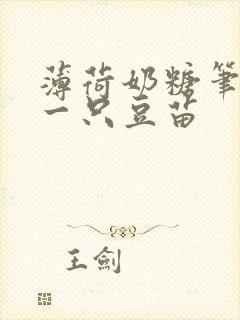 薄荷奶糖筆
一只豆苗
王劍